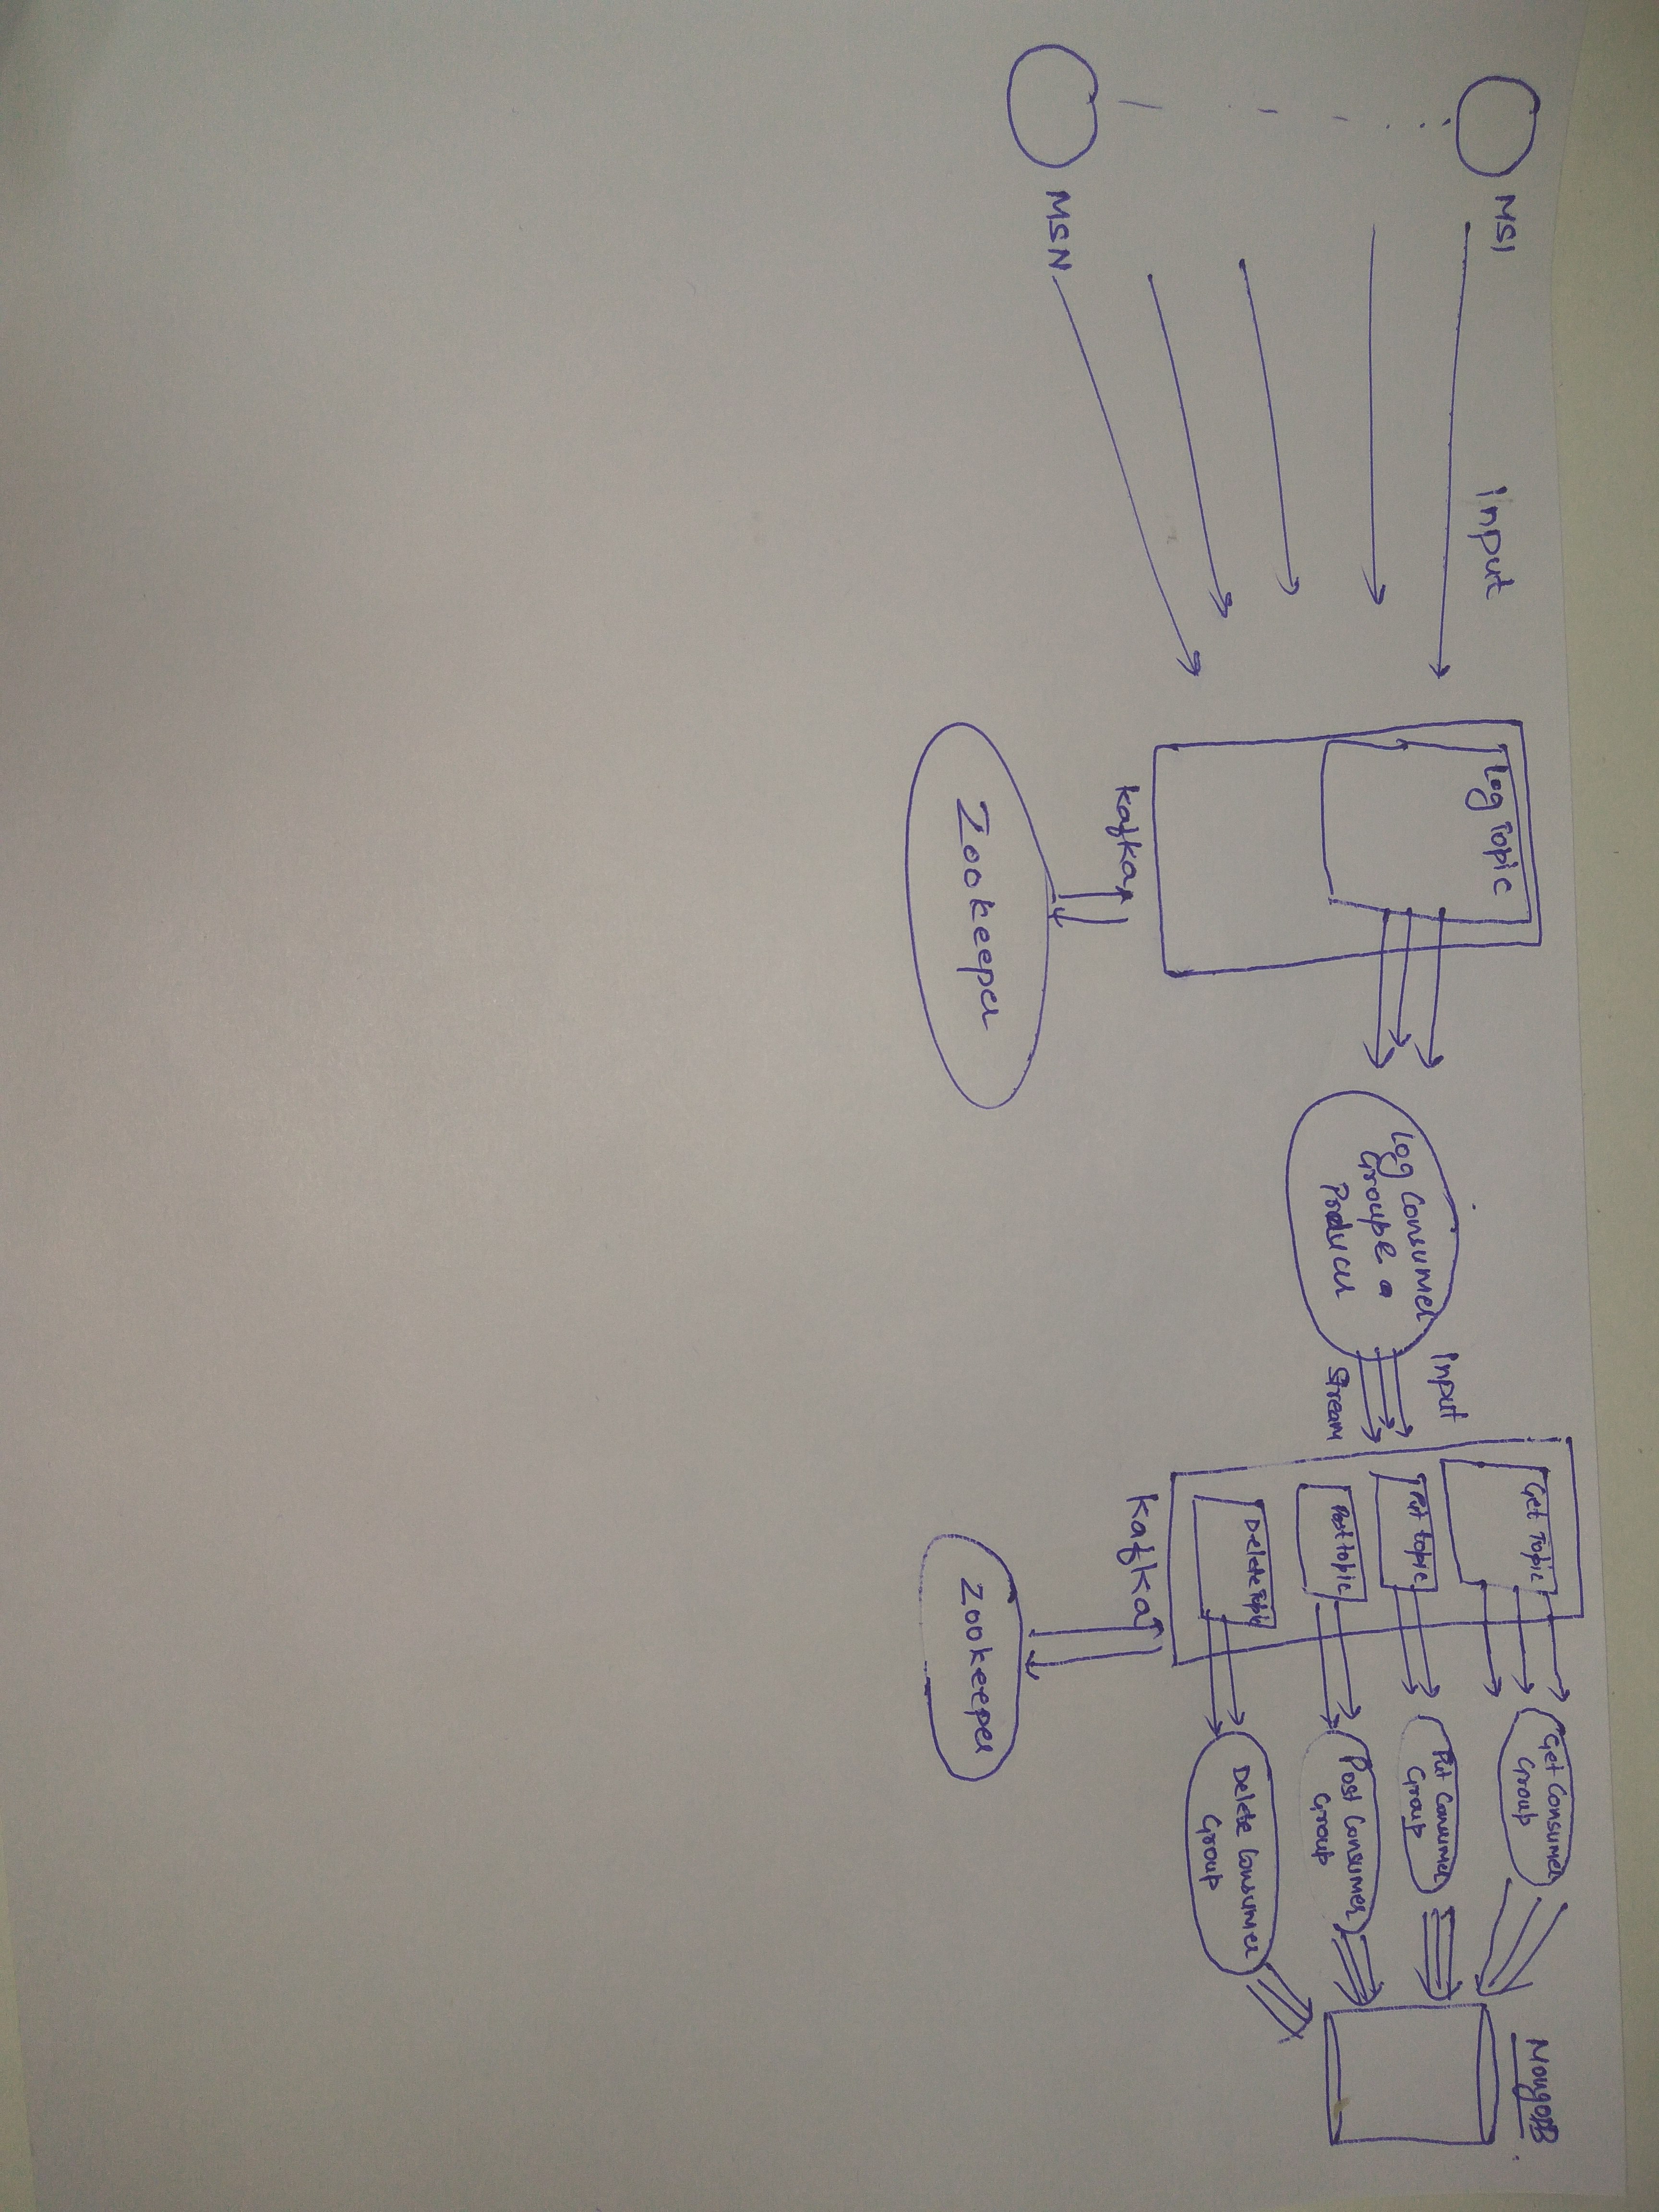 MS1
MSN
Input
Log Topic
Kafka
Zookeeper
Log Consumer
Group & a
Producer
Input
Stream
Get Topic
Put topic
Post topic
Delete Topic
Kafka
Zookeeper
Get Consumer
Group
Put Consumer
Group
Post Consumer
Group
Delete Consumer
Group
MongoDB